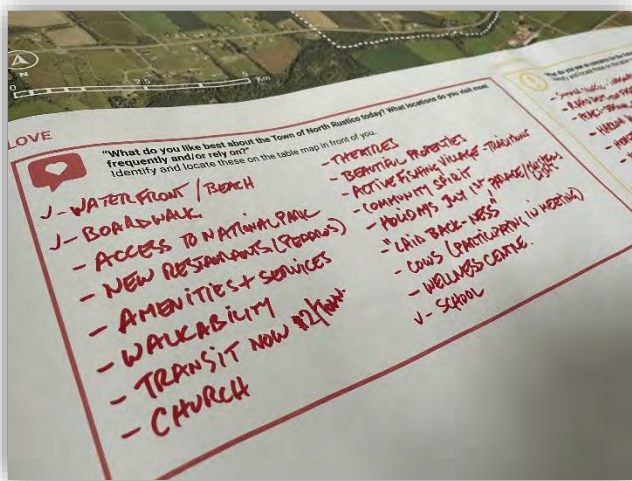 N
0
2.5
Km
LOVE
"What do you like best about the Town of North Rustico today? What locations do you visit most
frequently and/or rely on?"
Identify and locate these on the table map in front of you.
✓- WATERFRONT / BEACH
✓- BOARDWALK
- ACCESS TO NATIONAL PARK
- NEW RESTAURANTS (PEDROS)
- AMENITIES + SERVICES
- WALKABILITY
- TRANSIT NOW $2/
- CHURCH
- THEATRES
- BEAUTIFUL PROPERTIES
- ACTIVE FISHING VILLAGE - TRADITIONS
- COMMUNITY SPIRIT
- HOLIDAYS JULY 1ST PARADE/
- "LAID BACK-NESS"
- COWS (PARTICIPATING IN MEETING)
- WELLNESS CENTRE.
✓- SCHOOL